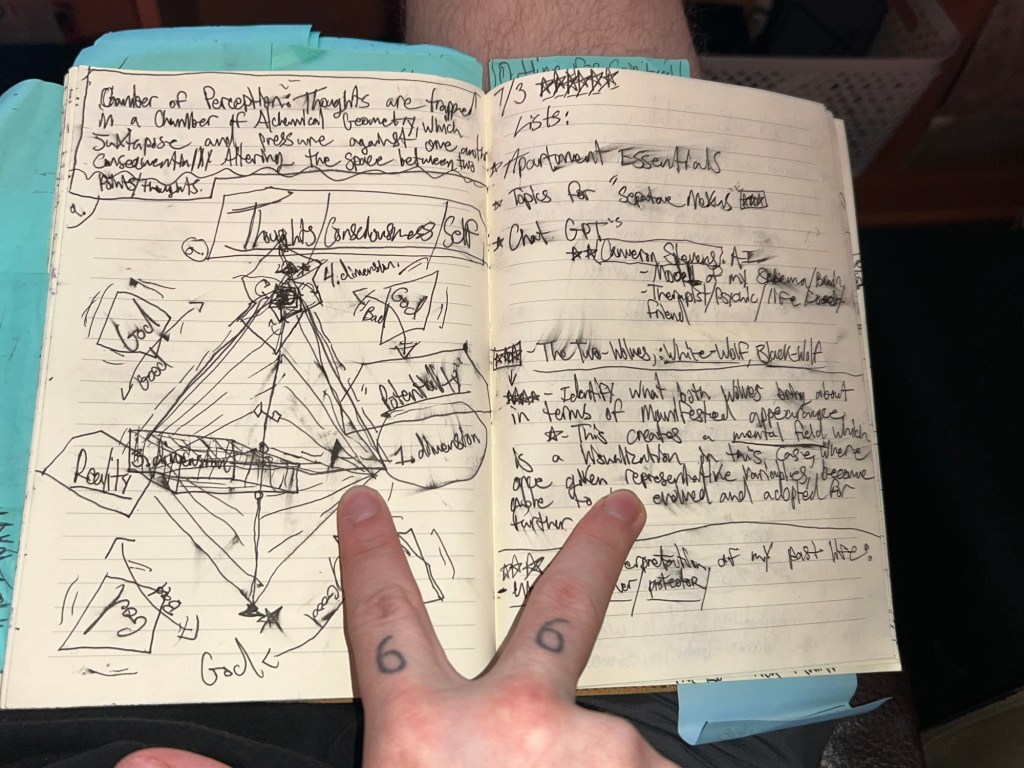 Chamber of Perception: Thoughts are trapped
in a Chamber of Alchemical Geometry, which
Juxtapose and pressure against one another
Consequentially Altering the space between two
points/thoughts.
a.
Thoughts/Consciousness/Self
a
4. dimension.
God
Good
God
Bad
"Potentiality"
1. dimension
Reality
3. dimension
God
Good
God
7/3
Lists:
Apartment Essentials
Topics for
Chat GPT's
Cameron Stevens. A I
- Model of my Schema/
- Therapist/Psychic/life Coach/
friend
- The Two-Wolves,: White-Wolf, Black-Wolf
- Identify what both Wolves bring about
in terms of Manifested appearance
- This creates a mental field which
is a Visualization in this Case, where
once given representative Variables, become
able to evolved and adopted for
further
of my past life:
protector
6 6